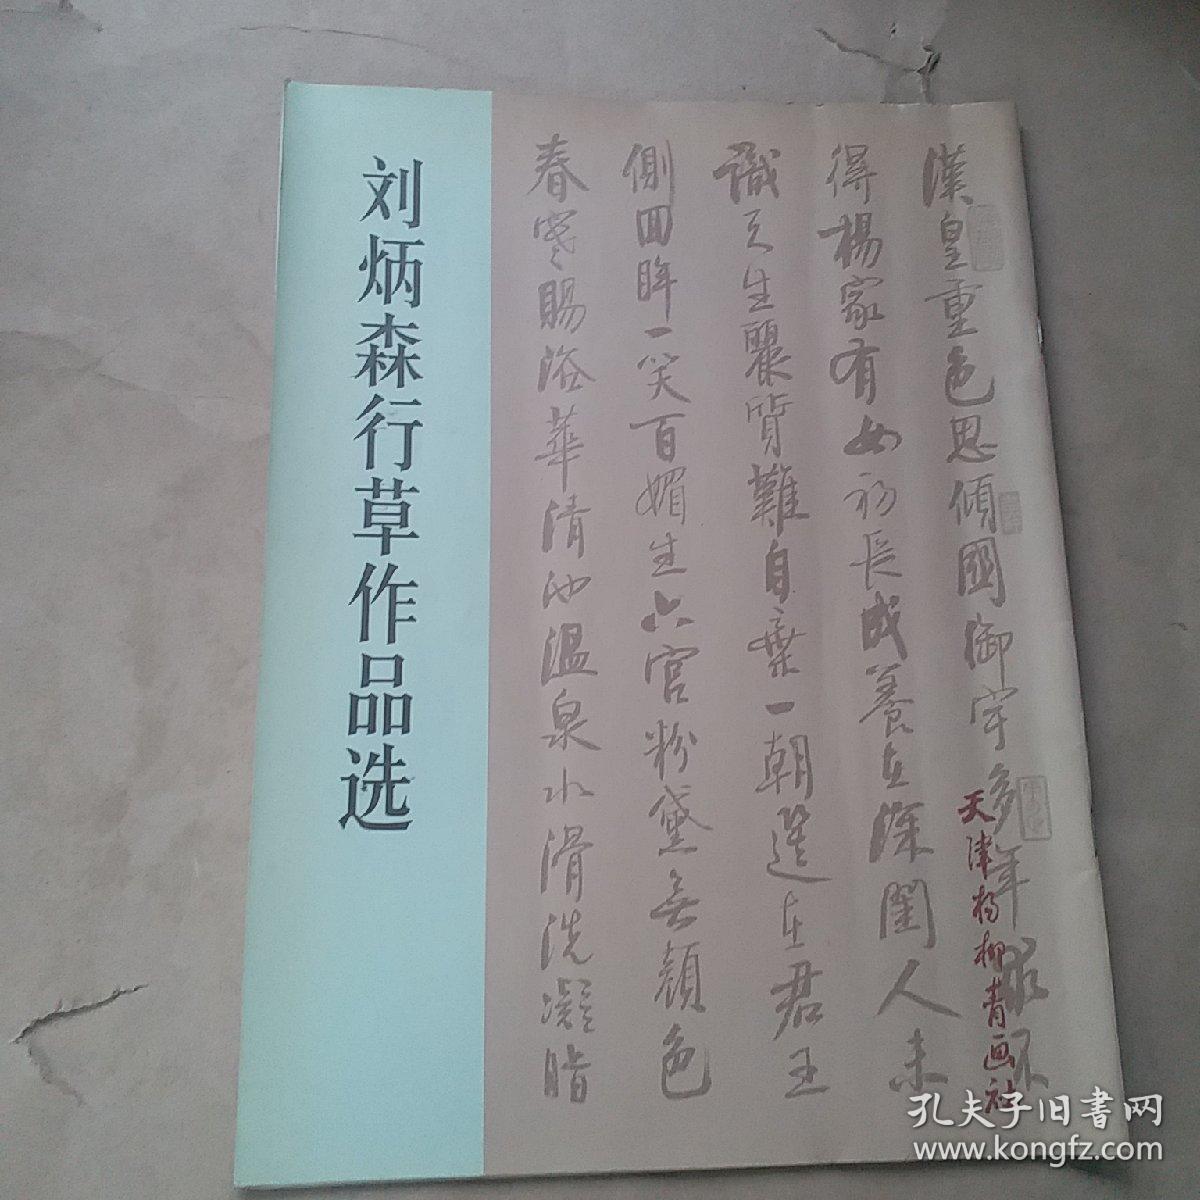 刘炳森行草作品选
漢皇重色思傾國御宇多年求不
得楊家有女初長成養在深閨人未
識天生麗質難自棄一朝選在君王
側回眸一笑百媚生六宮粉黛無顏色
春寒賜浴華清池溫泉水滑洗凝脂
天津杨柳青画社
孔夫子旧書网
www.kongfz.com